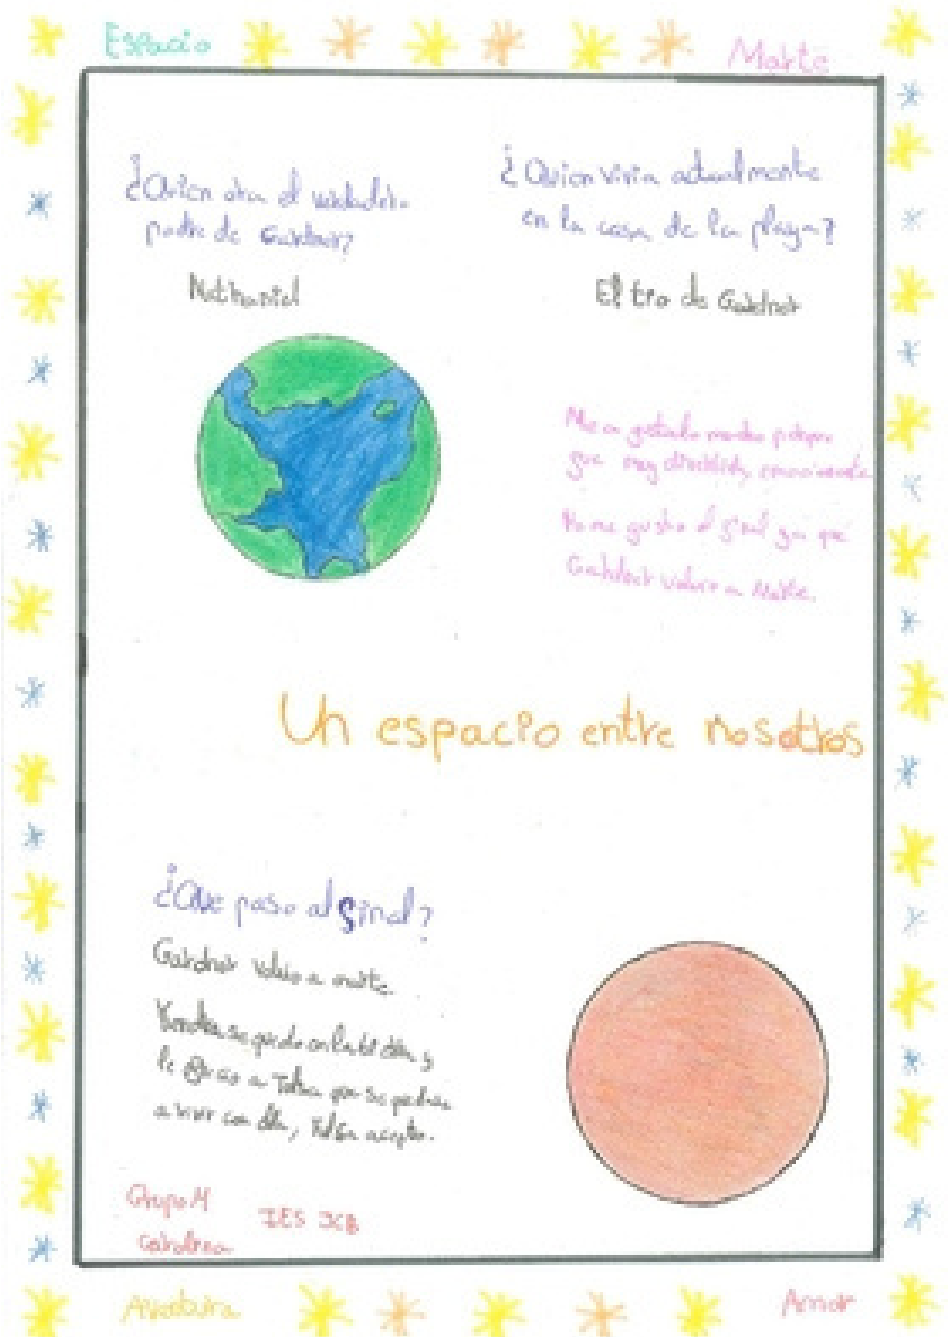 Espacio
Marte
¿Quien era el verdadero
padre de Gardner?
Nathaniel
¿Quien vivia actualmente
en la casa de la playa?
El tio de Gardner
Me a gustado mucho
que muy divertida, emocionante
No me gusto el final ya que
Gardner volvio a Marte.
Un espacio entre nosotros
¿Que paso al final?
Gardner volvio a marte
se quedo en la tierra y
le a Tulsa que se
a vivir con ella, Tulsa acepto.
Grupo M
IES JCB
Carolina
Aventura
Amor